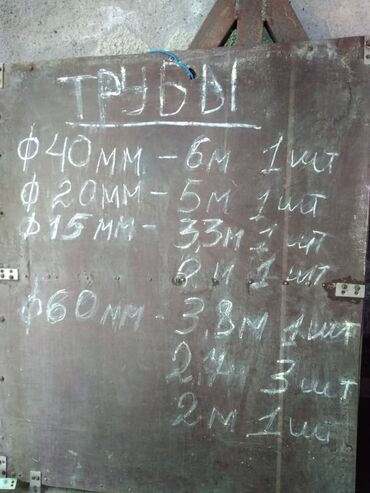 ТРУБЫ
ф 40мм - 6м 1шт
ф 20мм - 5м 1шт
ф 15мм - 3,3м 1шт
2м 1шт
ф 60мм - 3,8м 1шт
2,4м 3шт
2м 1шт